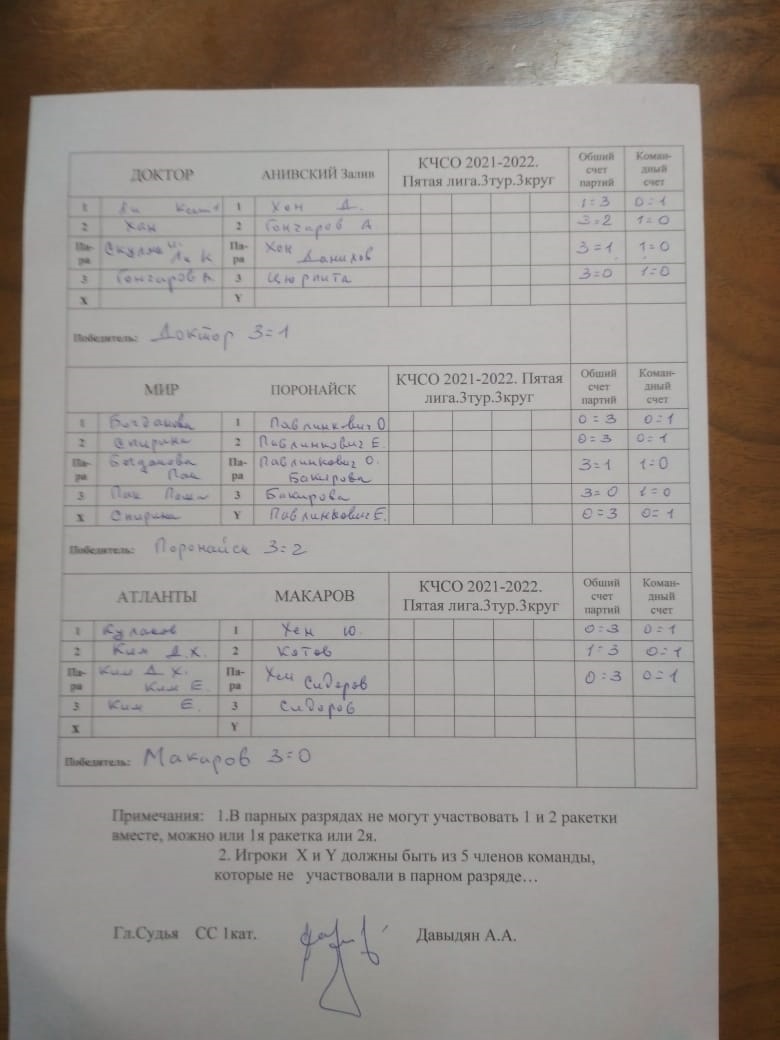 ДОКТОР АНИВСКИЙ Залив КЧСО 2021-2022. Общий Коман-
Пятая лига.3тур.3круг счет дный
партий счет
1 1 Хен Д. 1=3 0=1
2 Хан 2 Гончаров А 3=2 1=0
Па- Па- Хен 3=1 1=0
ра К ра Данилов
3 Гончаров А 3 Цюрпита 3=0 1=0
X Y
Победитель: Доктор 3=1
МИР ПОРОНАЙСК КЧСО 2021-2022. Пятая Общий Коман-
лига.3тур.3круг счет дный
партий счет
1 Богданова 1 Павлинкович О 0=3 0=1
2 Спирина 2 Павлинкович Е. 0=3 0=1
Па- Богданова Па- Павлинкович О. 3=1 1=0
ра Пак ра Бакирова
3 Пак 3 Бакирова 3=0 1=0
X Спирина Y Павлинкович Е. 0=3 0=1
Победитель: Поронайск 3=2
АТЛАНТЫ МАКАРОВ КЧСО 2021-2022. Общий Коман-
Пятая лига.3тур.3круг счет дный
партий счет
1 Кулаков 1 Хен Ю. 0=3 0=1
2 Ким Д.Х. 2 Котов 1=3 0=1
Па- Ким Д.Х. Па- Хен 0=3 0=1
ра Ким Е. ра Сидоров
3 Ким Е. 3 Сидоров
X Y
Победитель: Макаров 3=0
Примечания: 1.В парных разрядах не могут участвовать 1 и 2 ракетки
вместе, можно или 1я ракетка или 2я.
2. Игроки X и Y должны быть из 5 членов команды,
которые не участвовали в парном разряде…
Гл.Судья СС 1кат. Давыдян А.А.